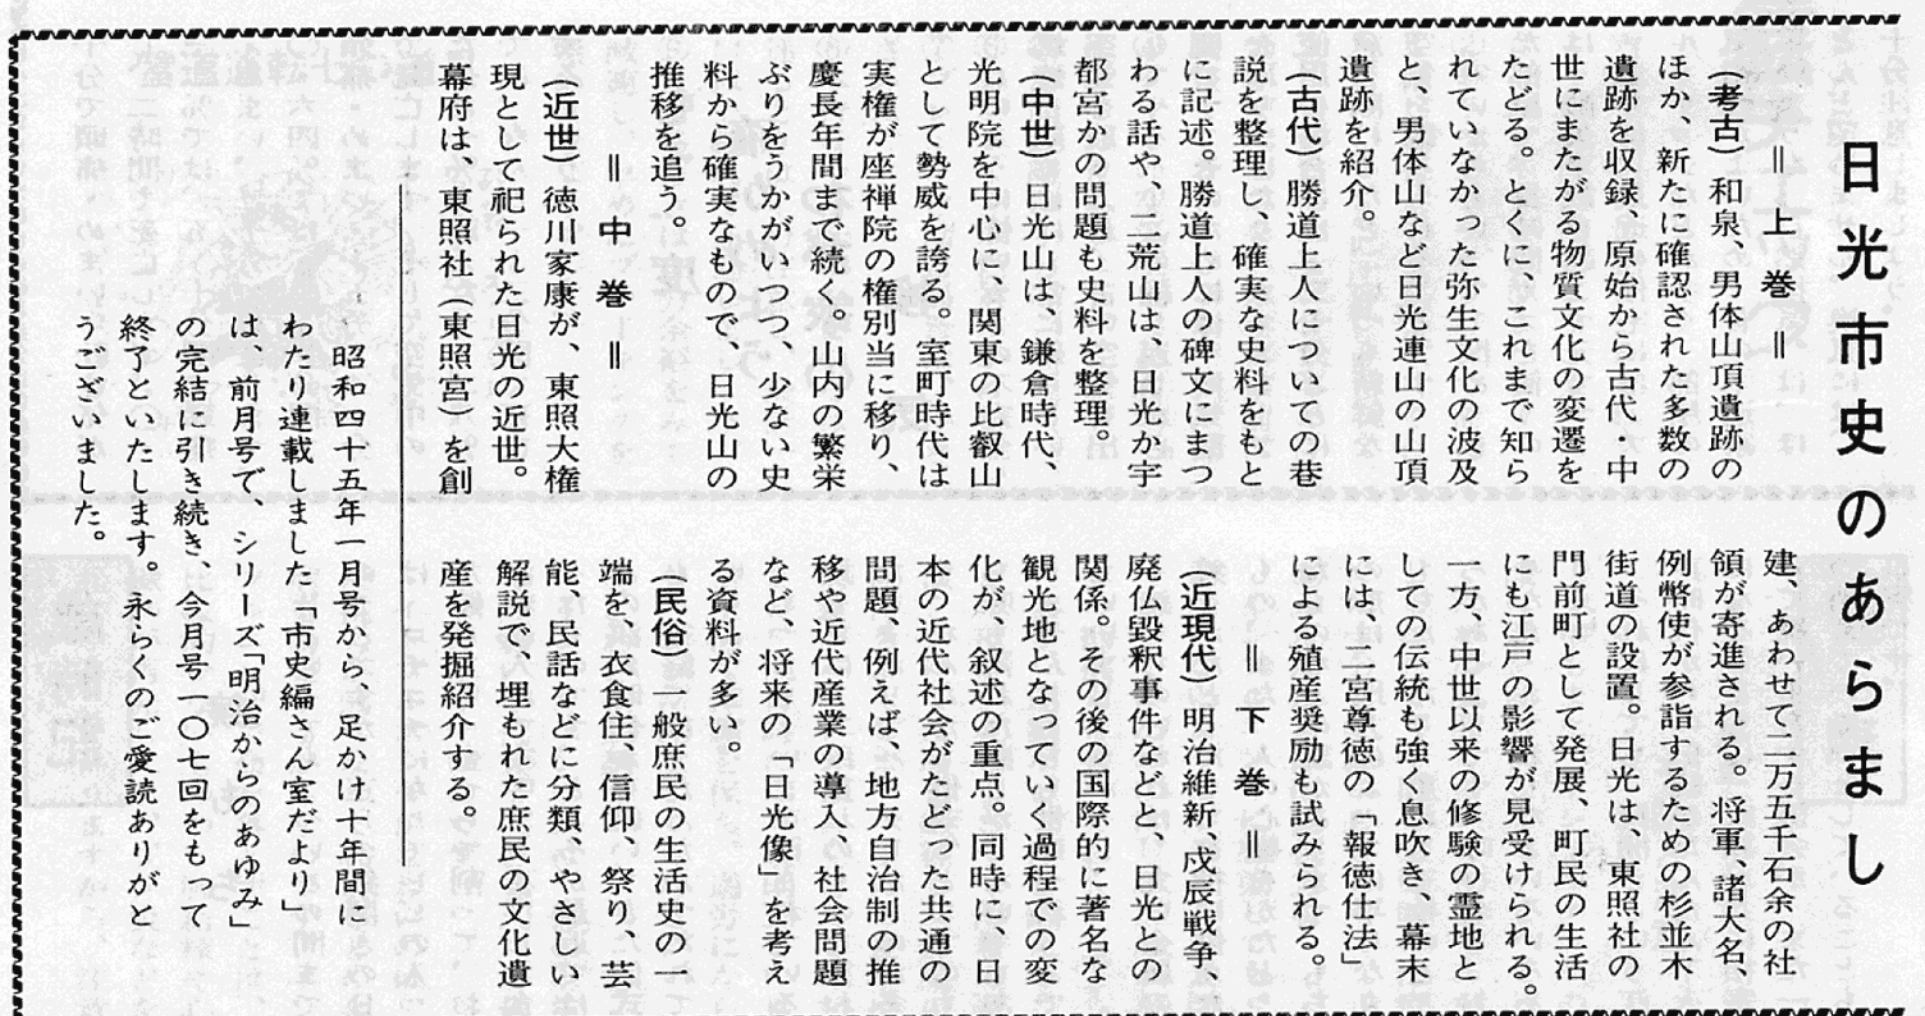 日光市史のあらまし
＝上巻＝
（考古）和泉、男体山頂遺跡の
ほか、新たに確認された多数の
遺跡を収録、原始から古代・中
世にまたがる物質文化の変遷を
たどる。とくに、これまで知ら
れていなかった弥生文化の波及
と、男体山など日光連山の山頂
遺跡を紹介。
（古代）勝道上人についての巷
説を整理し、確実な史料をもと
に記述。勝道上人の碑文にまつ
わる話や、二荒山は、日光か宇
都宮かの問題も史料を整理。
（中世）日光山は、鎌倉時代、
光明院を中心に、関東の比叡山
として勢威を誇る。室町時代は
実権が座禅院の権別当に移り、
慶長年間まで続く。山内の繁栄
ぶりをうかがいつつ、少ない史
料から確実なもので、日光山の
推移を追う。
＝中巻＝
（近世）徳川家康が、東照大権
現として祀られた日光の近世。
幕府は、東照社（東照宮）を創
建、あわせて二万五千石余の社
領が寄進される。将軍、諸大名、
例幣使が参詣するための杉並木
街道の設置。日光は、東照社の
門前町として発展、町民の生活
にも江戸の影響が見受けられる。
一方、中世以来の修験の霊地と
しての伝統も強く息吹き、幕末
には、二宮尊徳の「報徳仕法」
による殖産奨励も試みられる。
＝下巻＝
（近現代）明治維新、戊辰戦争、
廃仏毀釈事件などと、日光との
関係。その後の国際的に著名な
観光地となっていく過程での変
化が、叙述の重点。同時に、日
本の近代社会がたどった共通の
問題、例えば、地方自治制の推
移や近代産業の導入、社会問題
など、将来の「日光像」を考え
る資料が多い。
（民俗）一般庶民の生活史の一
端を、衣食住、信仰、祭り、芸
能、民話などに分類、やさしい
解説で、埋もれた庶民の文化遺
産を発掘紹介する。
昭和四十五年一月号から、足かけ十年間に
わたり連載しました「市史編さん室だより」
は、前月号で、シリーズ「明治からのあゆみ」
の完結に引き続き、今月号一〇七回をもって
終了といたします。永らくのご愛読ありがと
うございました。